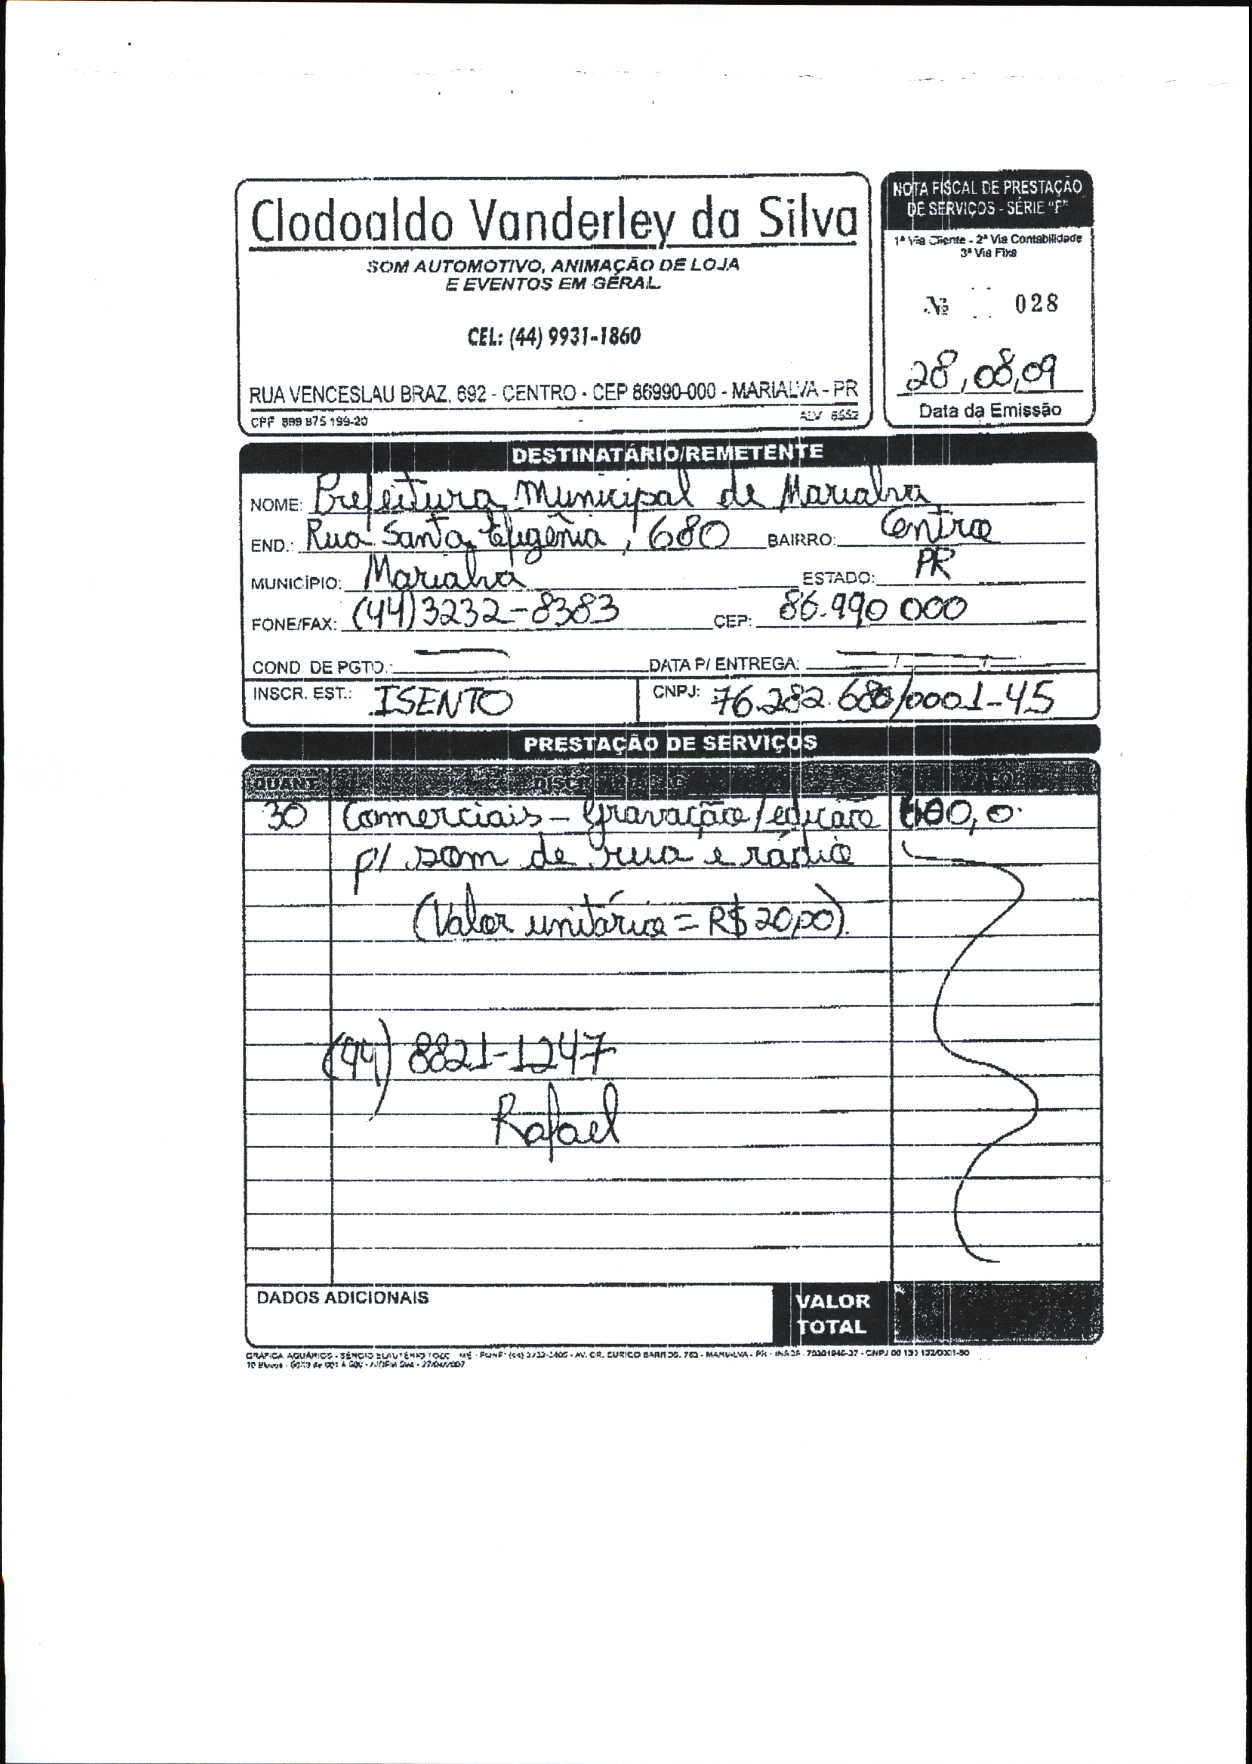 Clodoaldo Vanderley da Silva
SOM AUTOMOTIVO, ANIMAÇÃO DE LOJA
E EVENTOS EM GERAL
CEL: (44) 9931-1860
RUA VENCESLAU BRAZ, 692 - CENTRO - CEP 86990-000 - MARIALVA - PR
CPF 899 875 199-20
ALV 6552
NOTA FISCAL DE PRESTAÇÃO
DE SERVIÇOS - SÉRIE "F"
1ª Via Cliente - 2ª Via Contabilidade
3ª Via Fixa
Nº 028
28,08,09
Data da Emissão
DESTINATÁRIO/REMETENTE
NOME: Prefeitura Municipal de Marialva
END.: Rua Santa Efigênia, 680 BAIRRO: Centro
MUNICÍPIO: Marialva ESTADO: PR
FONE/FAX: (44) 3232-8383 CEP: 86.990 000
COND. DE PGTO.: DATA P/ ENTREGA: / /
INSCR. EST.: ISENTO CNPJ: 76.282.680/0001-45
PRESTAÇÃO DE SERVIÇOS
QUANT
30 Comerciais - Gravação/edição 600,0
p/ som de rua e rádio
(Valor unitário = R$ 20,00).
(44) 8821-1247
Rafael
DADOS ADICIONAIS
VALOR
TOTAL